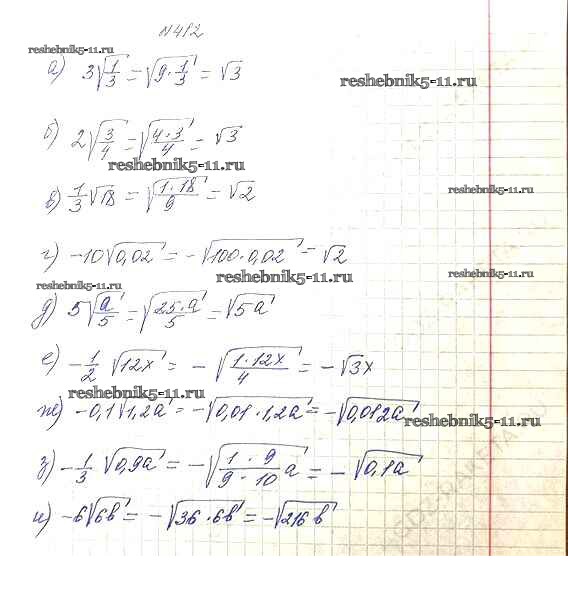 №412
reshebnik5-11.ru
а) 3√(1/3) = √(9·1/3) = √3
reshebnik5-11.ru
б) 2√(3/4) = √(4·3/4) = √3
reshebnik5-11.ru
в) 1/3 √18 = √(1·18/9) = √2
reshebnik5-11.ru
г) -10√0,02 = -√(100·0,02) = √2
reshebnik5-11.ru
reshebnik5-11.ru
reshebnik5-11.ru
д) 5√(a/5) = √(25·a/5) = √5a
е) -1/2 √12x = -√(1·12x/4) = -√3x
reshebnik5-11.ru
ж) -0,1√1,2a = -√(0,01·1,2a) = -√0,012a
reshebnik5-11.ru
з) -1/3 √0,9a = -√(1·9/9·10 a) = -√0,1a
и) -6√6b = -√(36·6b) = -√216b